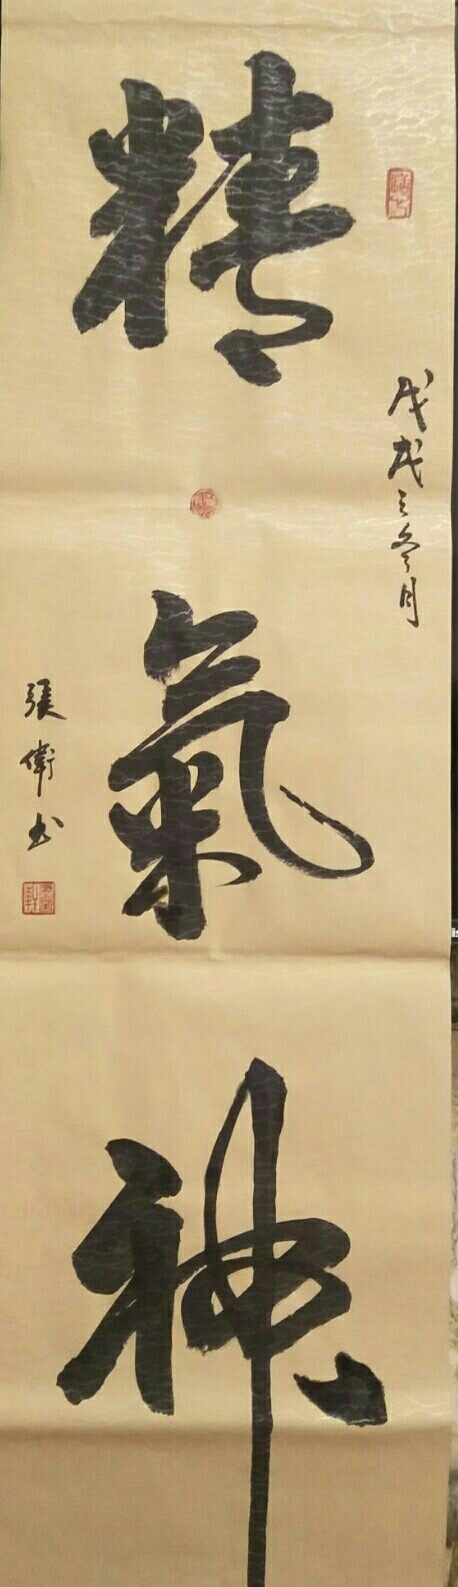 精氣神
戊戌之冬月
張衛书